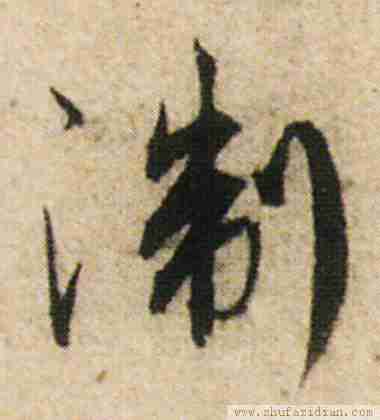 淛
www.shufazidian.com